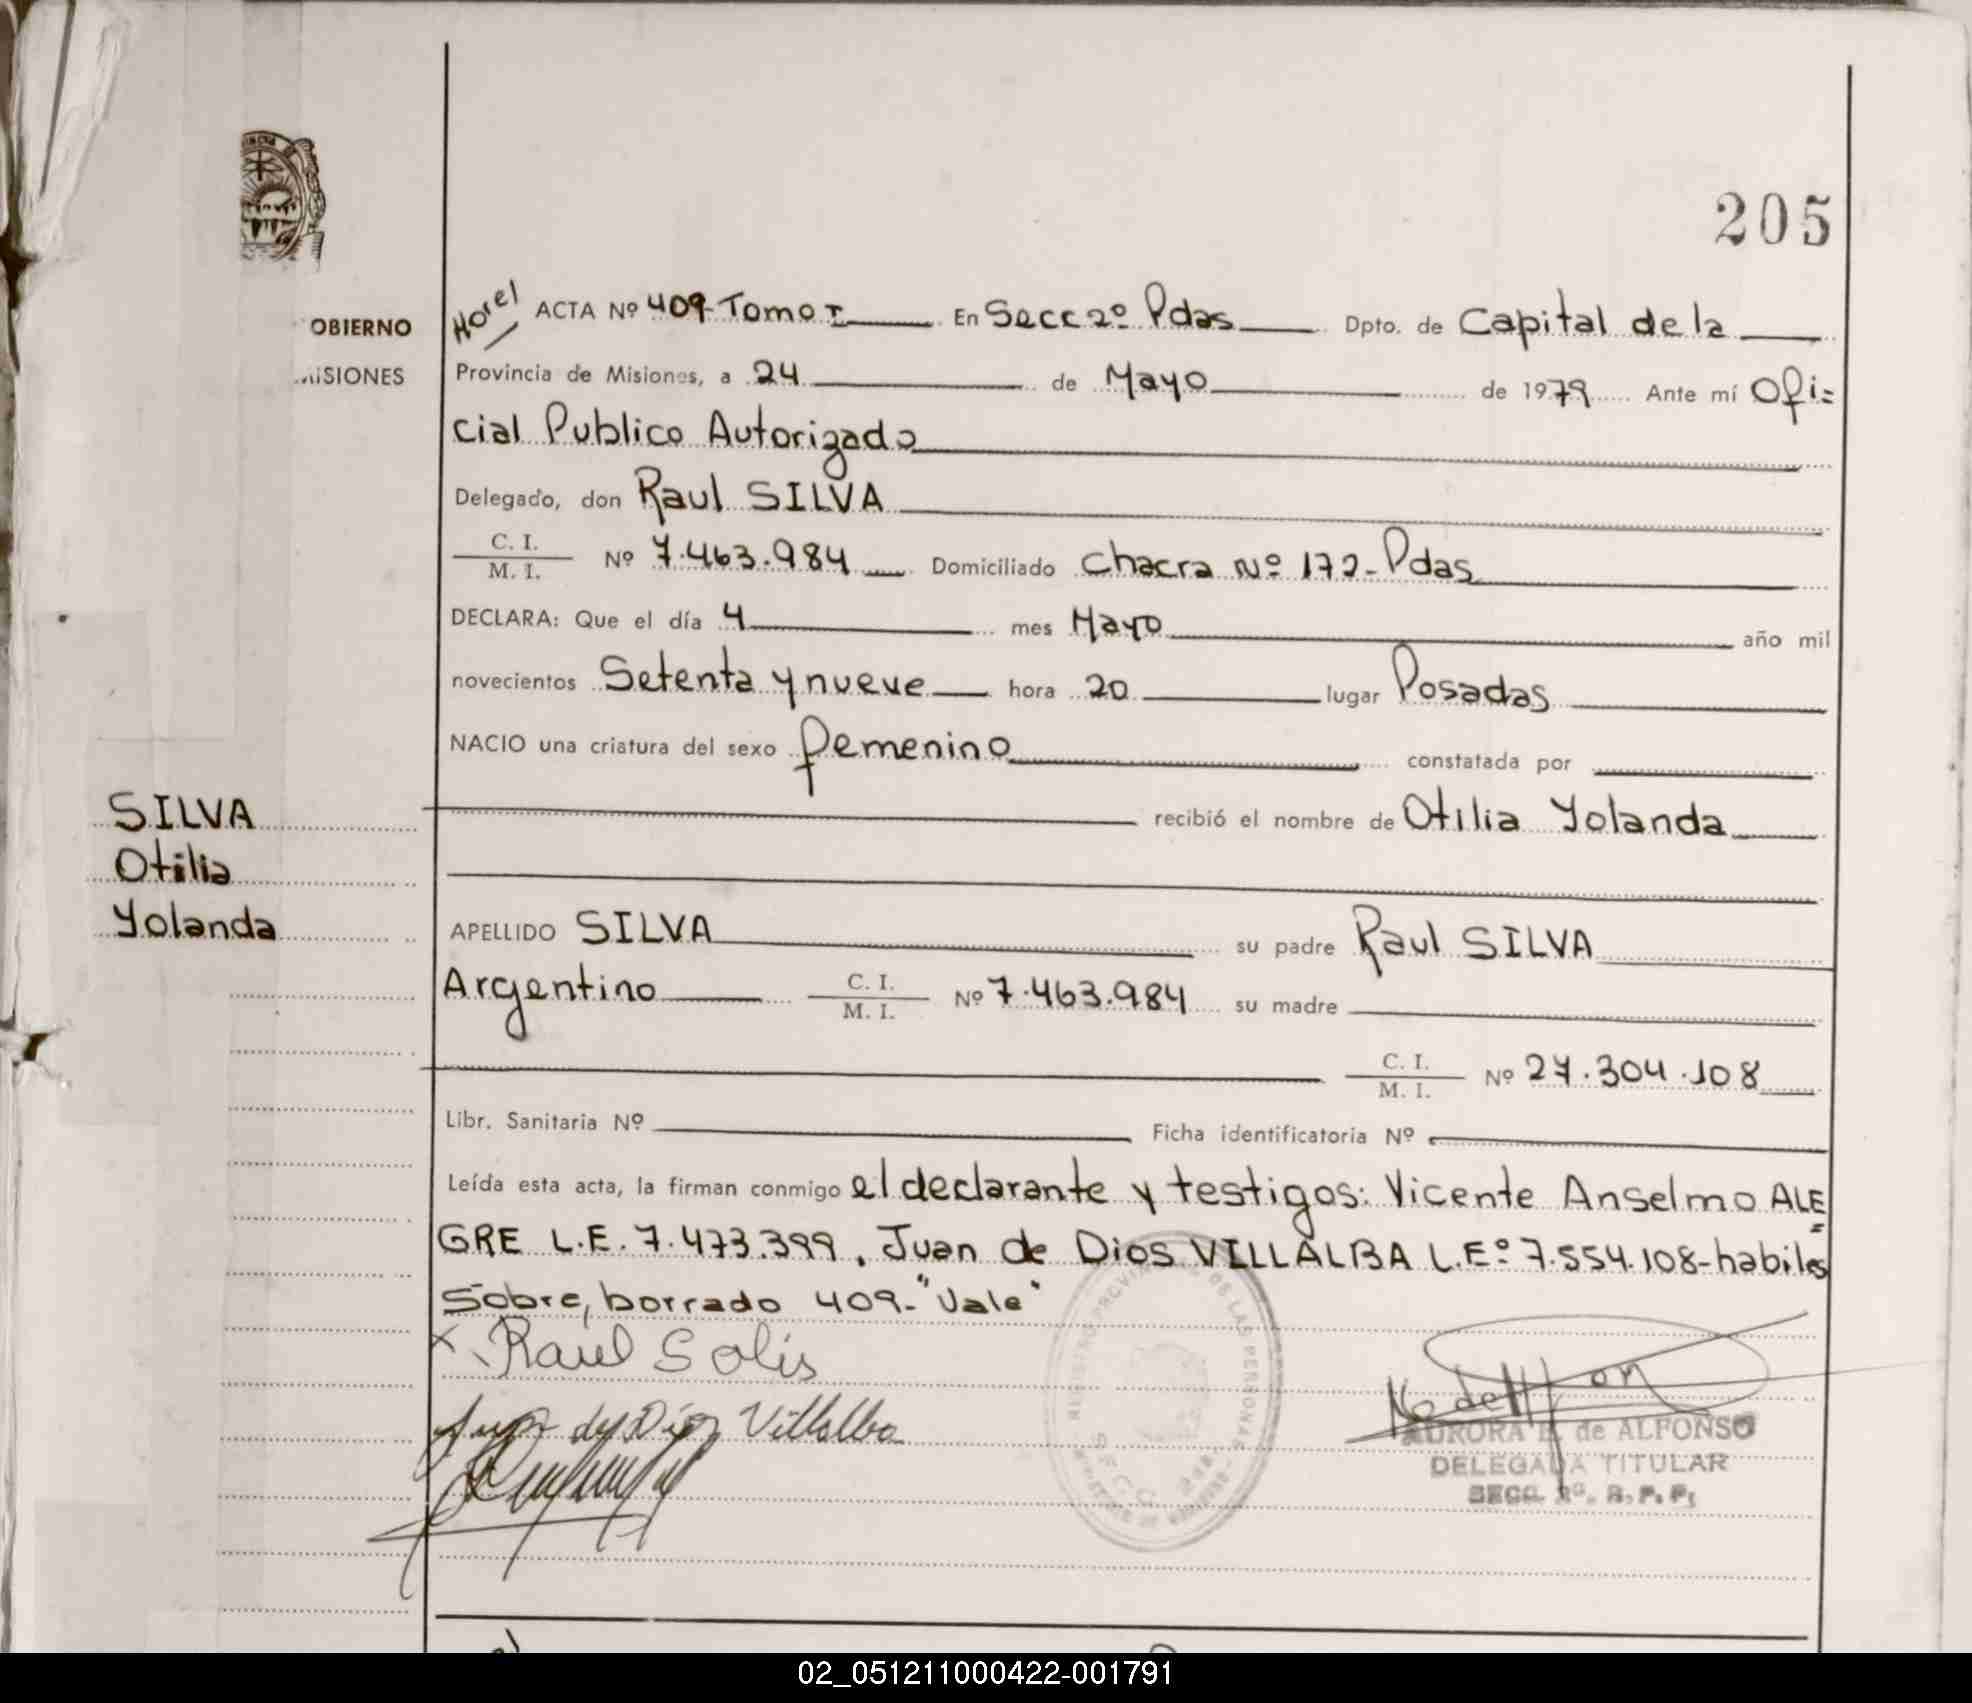 205
Horel ACTA Nº 409 Tomo I En Secc 2º Pdas Dpto. de Capital de la
OBIERNO
MISIONES
Provincia de Misiones, a 24 de Mayo de 1979 Ante mí Ofi=
cial Publico Autorizado
Delegado, don Raul SILVA
C. I.
M. I. Nº 7.463.984 Domiciliado Chacra Nº 172-Pdas
DECLARA: Que el día 4 mes Mayo año mil
novecientos Setenta y nueve hora 20 lugar Posadas
NACIO una criatura del sexo femenino constatada por
recibió el nombre de Otilia Yolanda
SILVA
Otilia
Yolanda
APELLIDO SILVA su padre Raul SILVA
Argentino C. I.
M. I. Nº 7.463.984 su madre
C. I.
M. I. Nº 27.304.108
Libr. Sanitaria Nº Ficha identificatoria Nº
Leída esta acta, la firman conmigo el declarante y testigos: Vicente Anselmo ALE=
GRE L.E. 7.473.399, Juan de Dios VILLALBA L.Eº 7.554.108-habiles
Sobre, borrado 409-"Vale"
x Raúl Solis
Juan de Dios Villalba
REGISTRO PROVINCIAL DE LAS PERSONAS
AURORA E. de ALFONSO
DELEGADA TITULAR
SECC. 2ª. R. P. P.
02_051211000422-001791